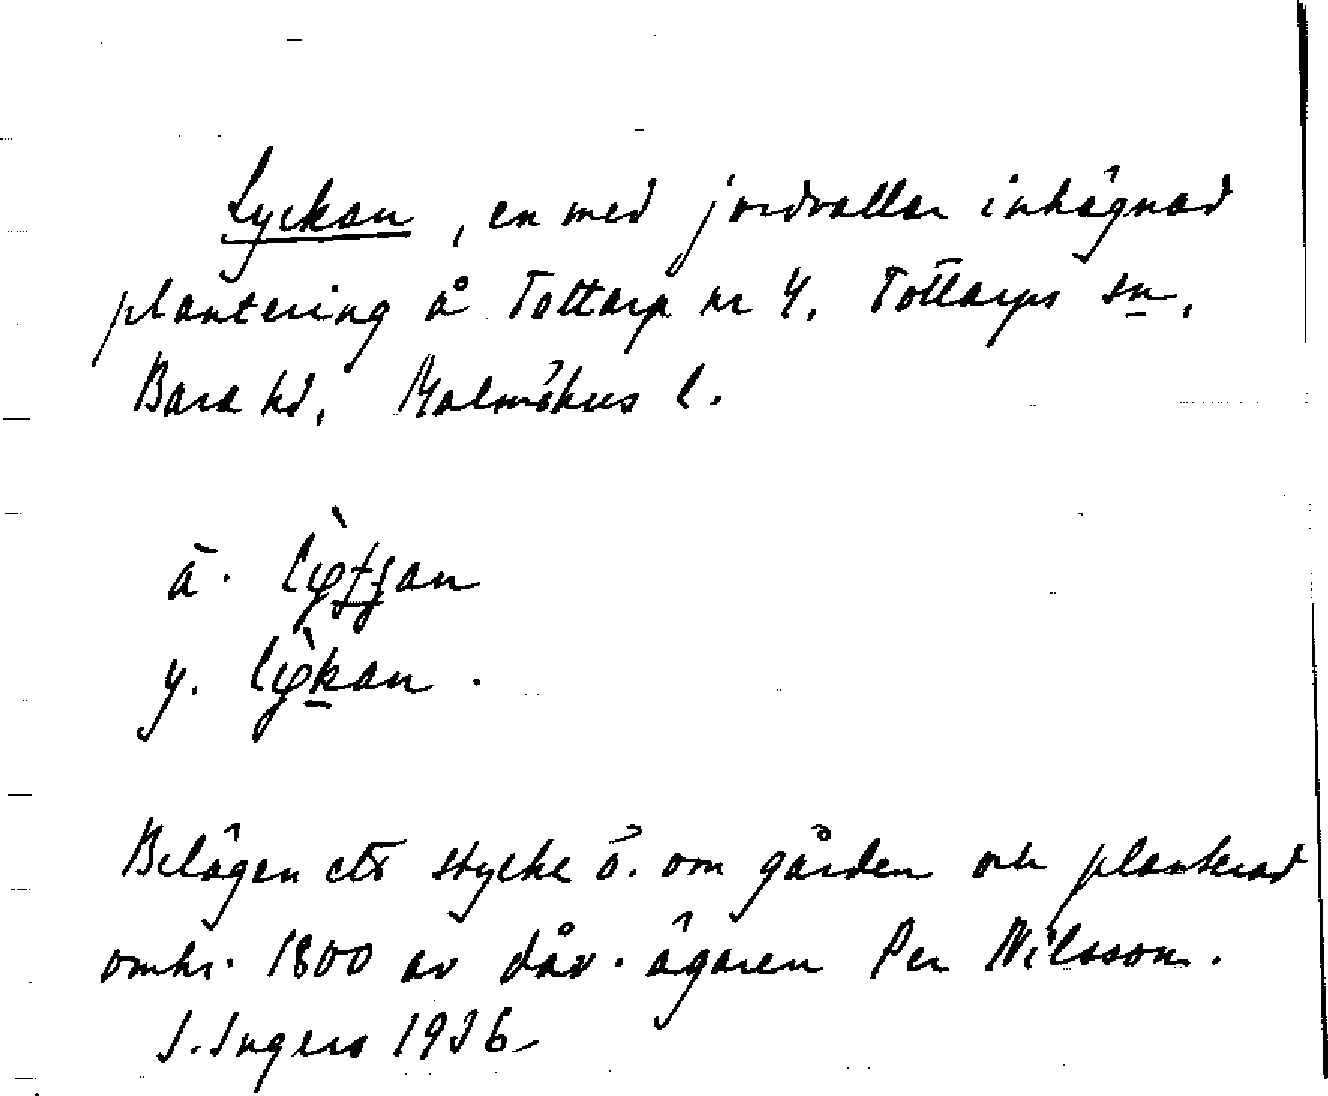 Lyckan, en med jordvallar inhägnad
plantering å Tottarp nr 4. Tottarps sn,
Bara hd, Malmöhus l.
ä.
y.
Belägen ett stycke ö. om gården och planterad
omkr. 1800 av dåv. ägaren Per Nilsson.
I. Ingers 1936